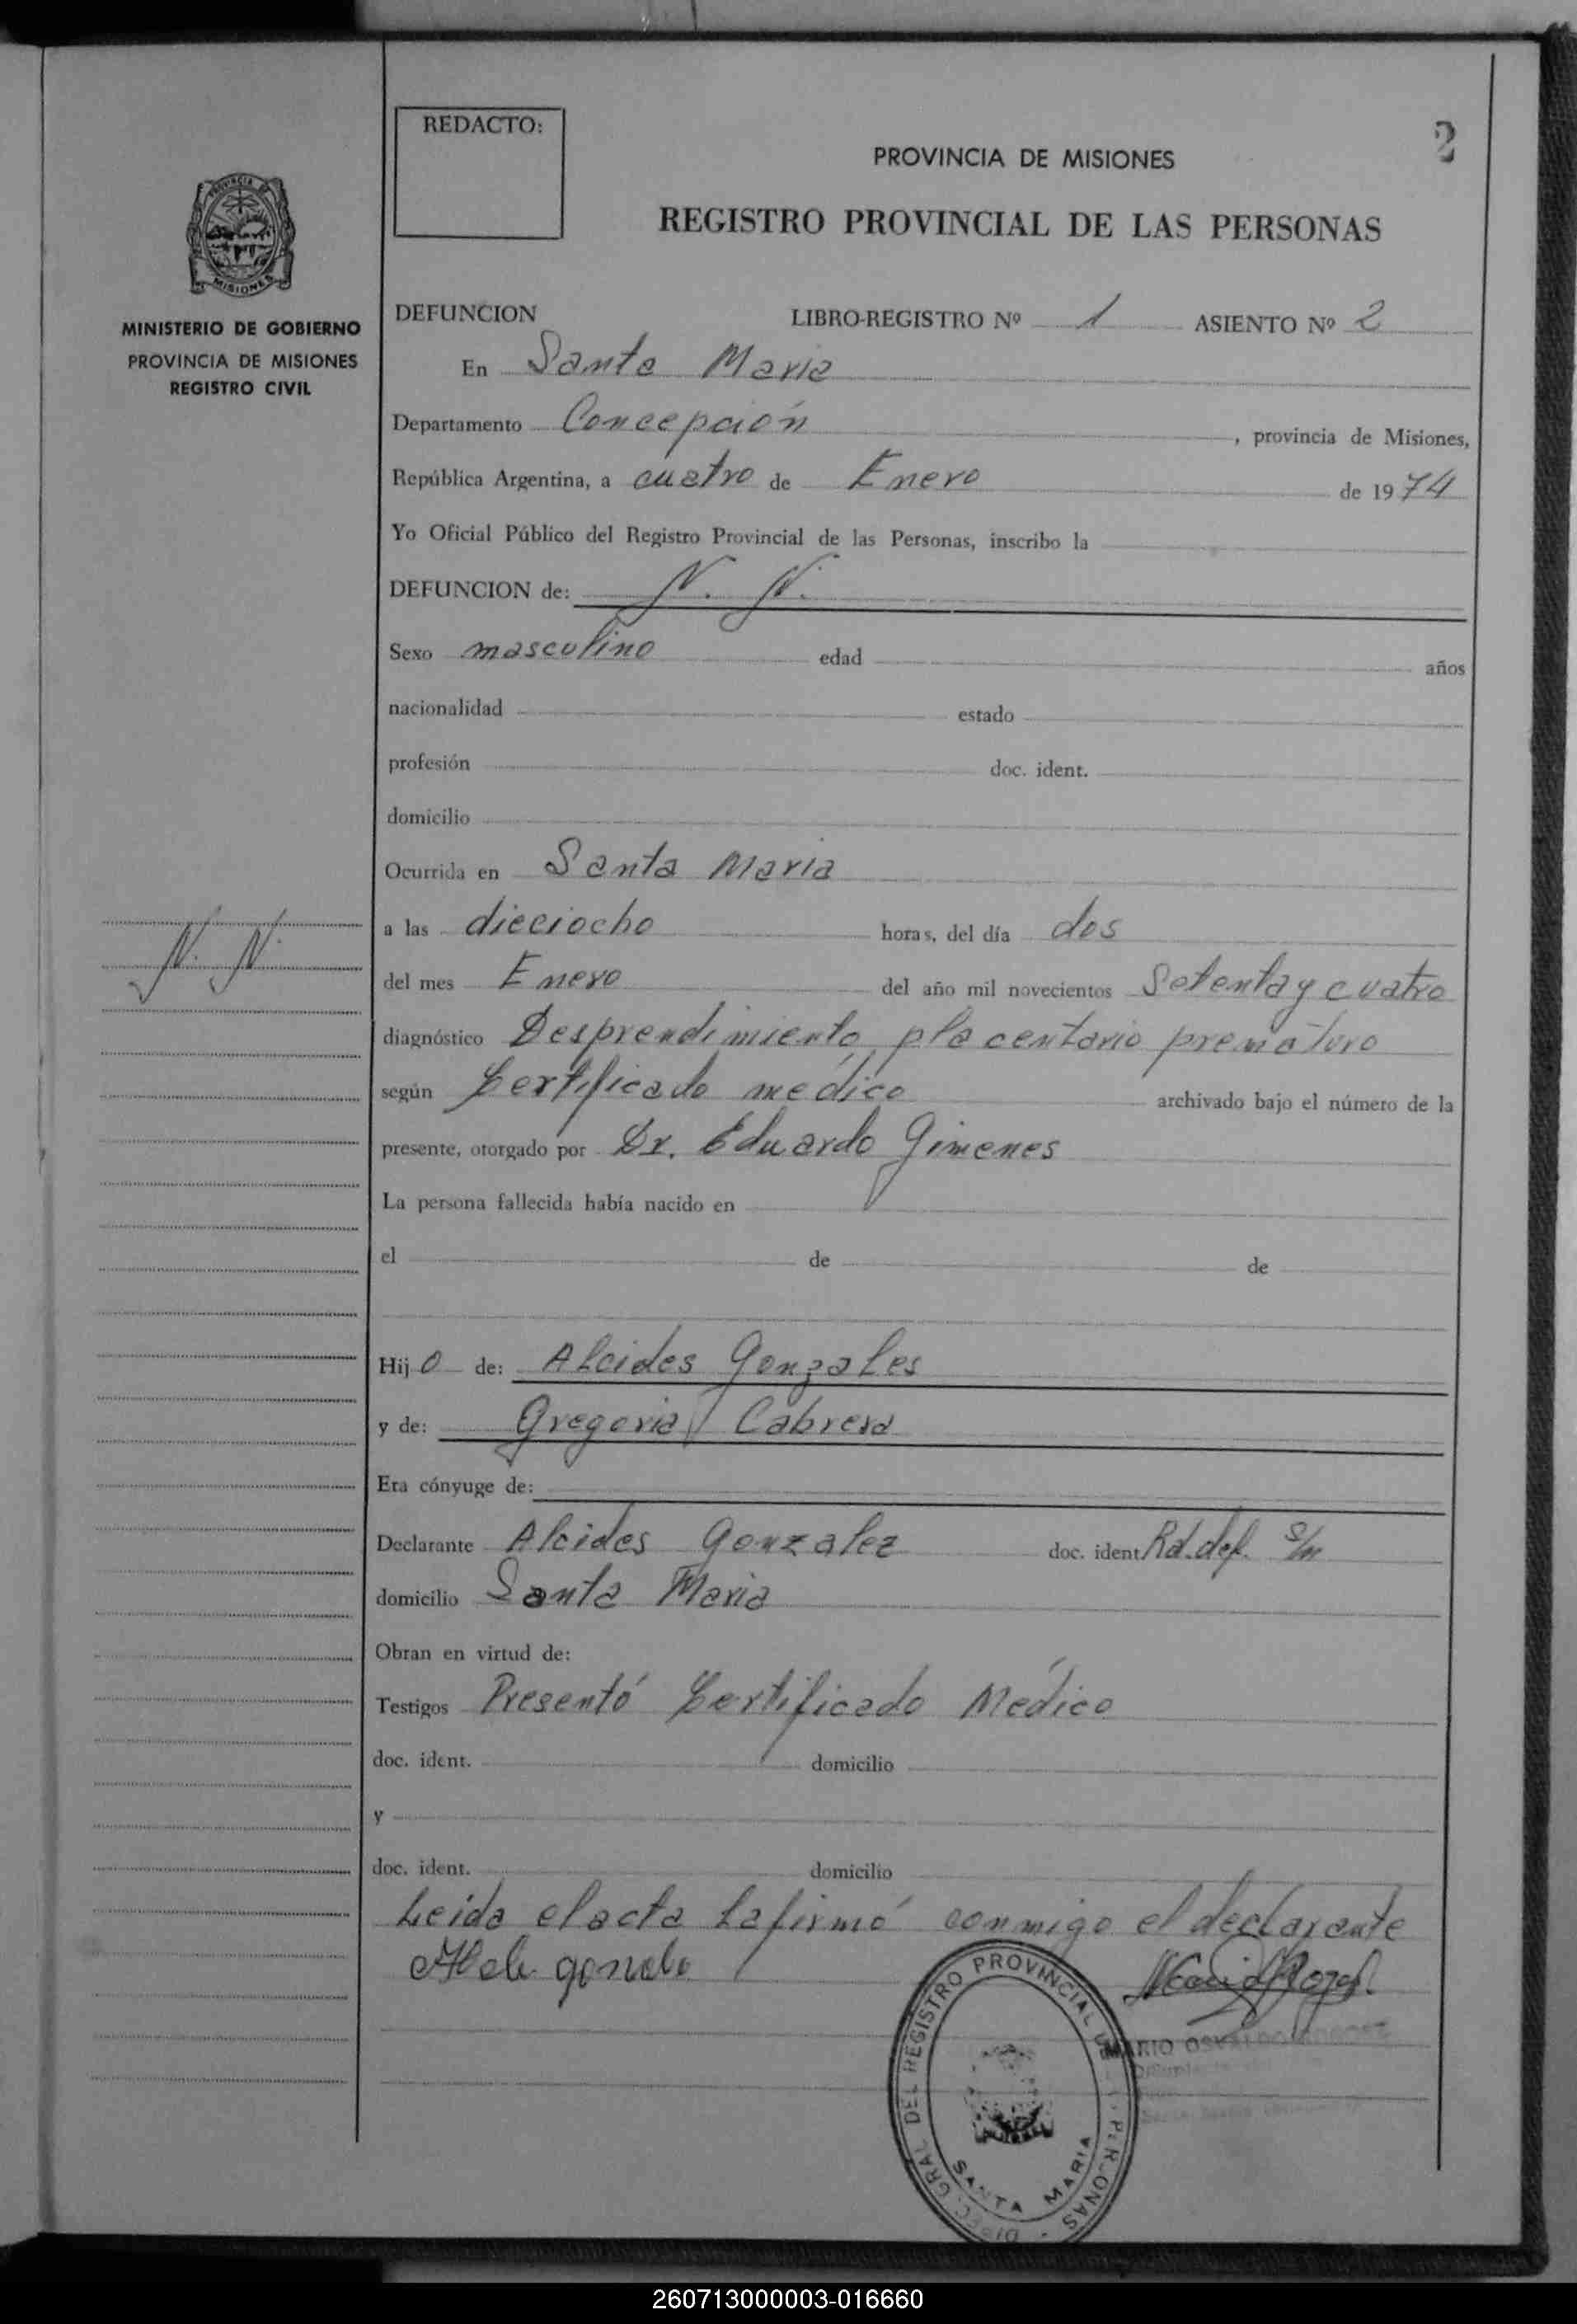 REDACTO:
2
PROVINCIA DE MISIONES
REGISTRO PROVINCIAL DE LAS PERSONAS
MINISTERIO DE GOBIERNO
PROVINCIA DE MISIONES
REGISTRO CIVIL
DEFUNCION LIBRO-REGISTRO Nº 1 ASIENTO Nº 2
En Santa Maria
Departamento Concepción, provincia de Misiones,
República Argentina, a cuatro de Enero de 1974
Yo Oficial Público del Registro Provincial de las Personas, inscribo la
DEFUNCION de: N. N.
Sexo masculino edad años
nacionalidad estado
profesión doc. ident.
domicilio
Ocurrida en Santa Maria
N. N.
a las dieciocho horas, del día dos
del mes Enero del año mil novecientos Setenta y cuatro
diagnóstico Desprendimiento placentario prematuro
según Certificado médico archivado bajo el número de la
presente, otorgado por Dr. Eduardo Gimenes
La persona fallecida había nacido en
el de de
Hijo de: Alcides Gonzales
y de: Gregoria Cabrera
Era cónyuge de:
Declarante Alcides Gonzalez doc. ident. Rd. def. S/n
domicilio Santa Maria
Obran en virtud de:
Testigos Presentó Certificado Médico
doc. ident. domicilio
y
doc. ident. domicilio
Leida el acta la firmó conmigo el declarante
DIREC. GRAL. DEL REGISTRO PROVINCIAL DE PERSONAS
SANTA MARIA
MARIO OSVALDO
260713000003-016660